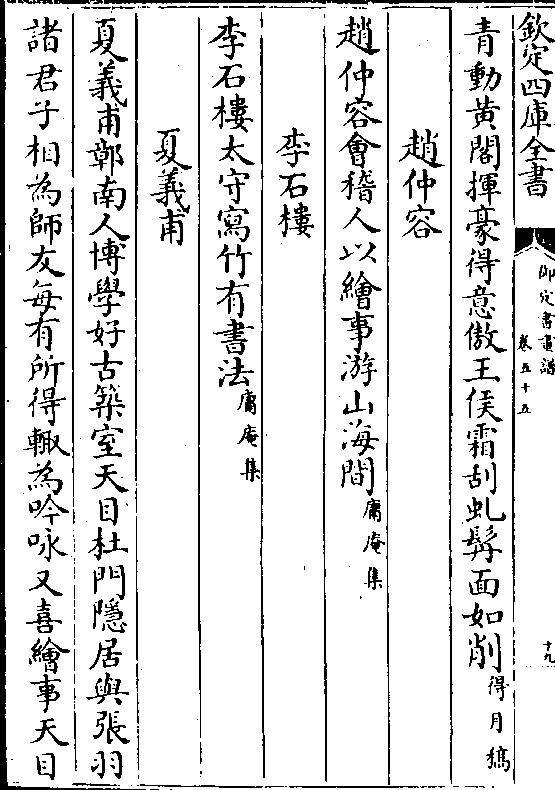 欽定四庫全書
御定書畫譜
卷五十五
十九
青動黄閣揮豪得意傲王侯霜刮虬髯面如削得月稿
趙仲容
趙仲容會稽人以繪事游山海間庸庵集
李石樓
李石樓太守寫竹有書法庸庵集
夏義甫
夏義甫鄣南人博學好古築室天目杜門隱居與張羽
諸君子相為師友每有所得輙為吟咏又喜繪事天目